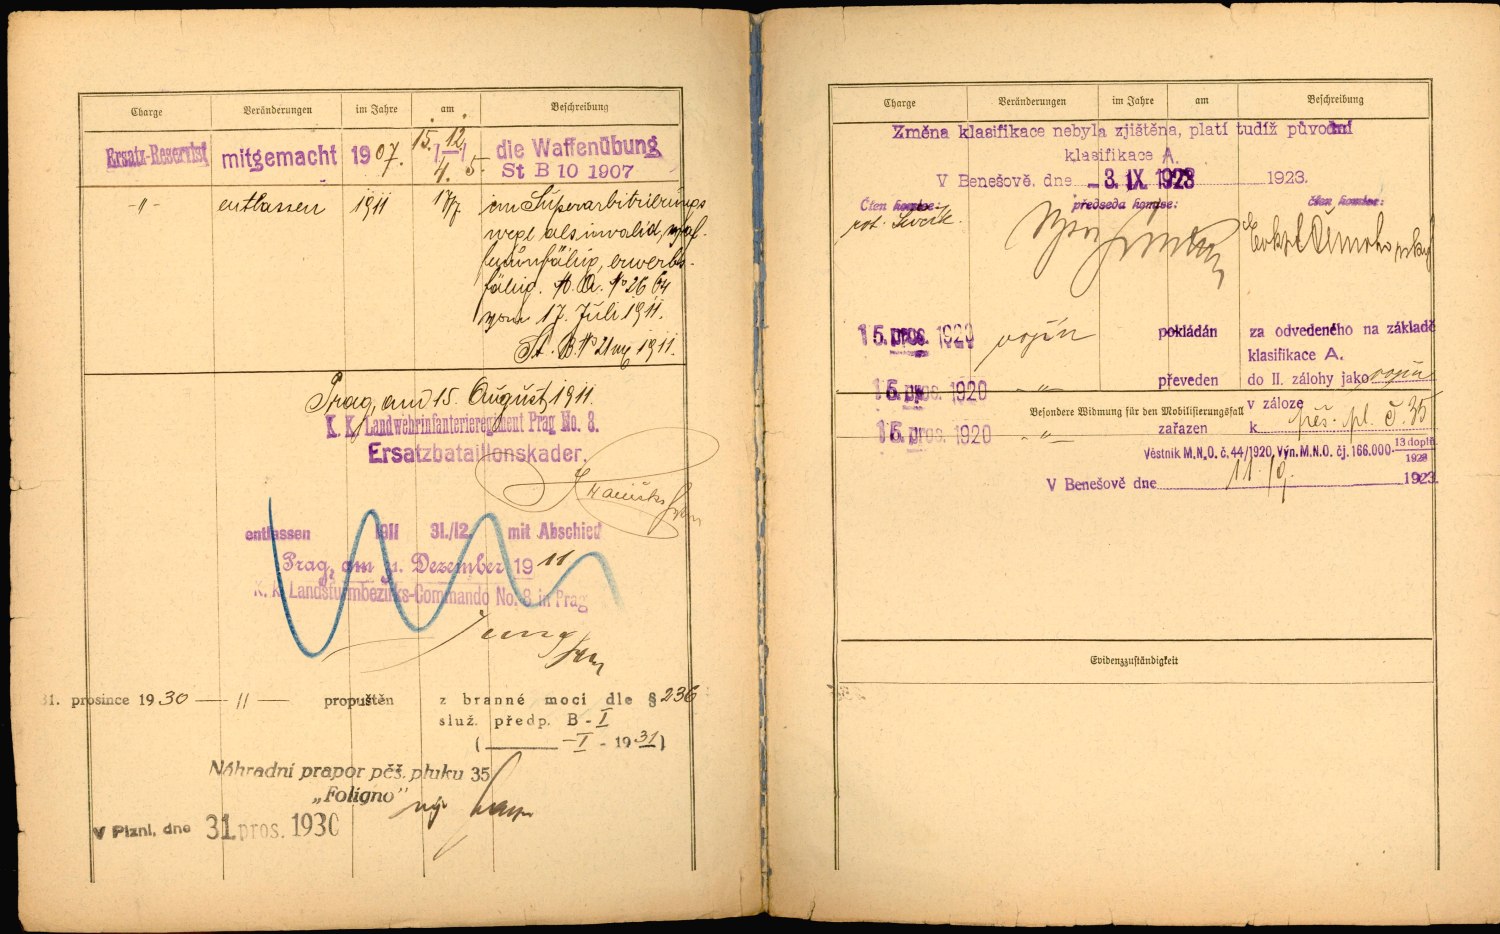 Charge Veränderungen im Jahre am Beschreibung
Ersatz-Reservist mitgemacht 1907. 15./4. 12/5. die Waffenübung
St B 10 1907
-〃- entlassen 1911 17/7. im Superarbitrierungs
wege als invalid, waf-
fenunfähig, erwerbs-
fähig. M. A. № 2664
vom 17. Juli 1911.
St. B. № 21 1911.
Prag, am 15. August 1911.
K. K. Landwehrinfanterieregiment Prag No. 8.
Ersatzbataillonskader.
entlassen 1911 31./12. mit Abschied
Prag, am 31. Dezember 1911
K. k. Landsturmbezirks-Commando No. 8 in Prag
31. prosince 1930 — 〃 — propuštěn z branné moci dle § 236
služ. předp. B - I
( -I - 1931)
Náhradní prapor pěš. pluku 35
„Foligno"
V Plzni, dne 31. pros. 1930
Charge Veränderungen im Jahre am Beschreibung
Změna klasifikace nebyla zjištěna, platí tudíž původní
klasifikace A.
V Benešově, dne - 3. IX. 1923 1923.
Člen komise: předseda komise: člen komise:
rot.
15. pros. 1920 vojín pokládán za odvedeného na základě
klasifikace A.
15. pros. 1920 -〃- převeden do II. zálohy jako vojín
Besondere Widmung für den Mobilisierungsfall
v záloze
15. pros. 1920 -〃- zařazen k pěš. pl. č. 35
Věstník M.N.O. č. 44/1920, Výn. M.N.O. čj. 166.000-13 doplň. 1923
V Benešově dne 11/9. 1923.
Evidenzzuständigkeit